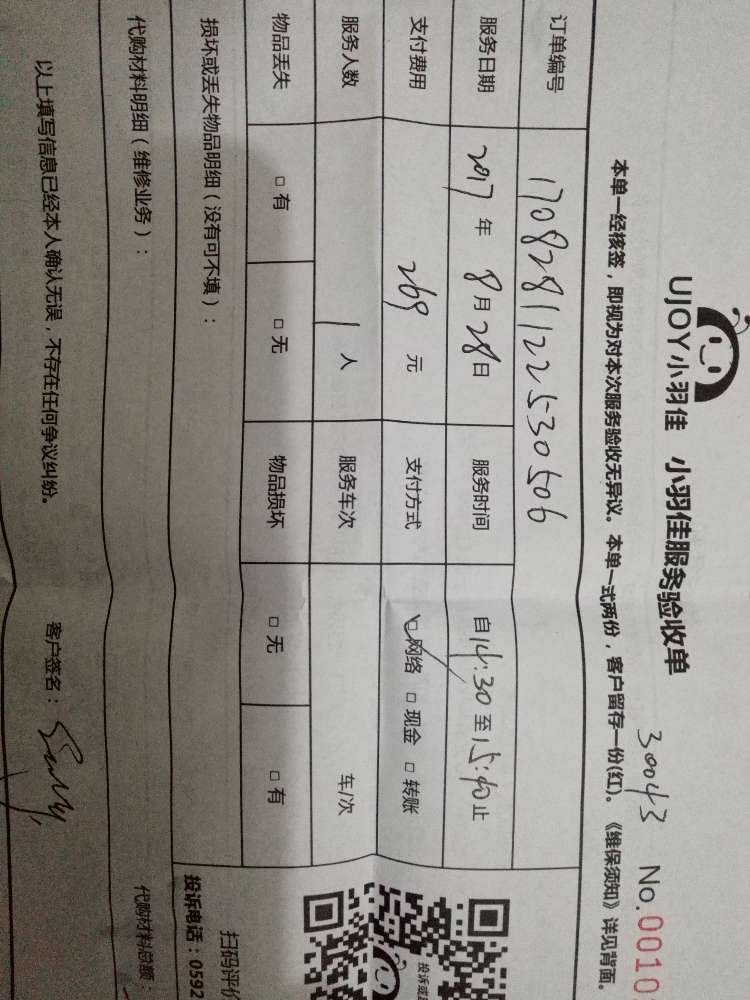 UJOY小羽佳 小羽佳服务验收单
30043 No.0010
本单一经核签，即视为对本次服务验收无异议。本单一式两份，客户留存一份(红)。《维保须知》详见背面。
订单编号 1708281122530506
服务日期 2017年8月28日 服务时间 自14:30至15:40止
支付费用 269元 支付方式 ☑网络 □现金 □转账
服务人数 1人 服务车次 车/次
物品丢失 □有 □无 物品损坏 □无 □有
损坏或丢失物品明细（没有可不填）：
扫码评价
投诉电话：0592
代购材料明细（维修业务）：
代购材料总额：
以上填写信息已经本人确认无误，不存在任何争议纠纷。 客户签名：